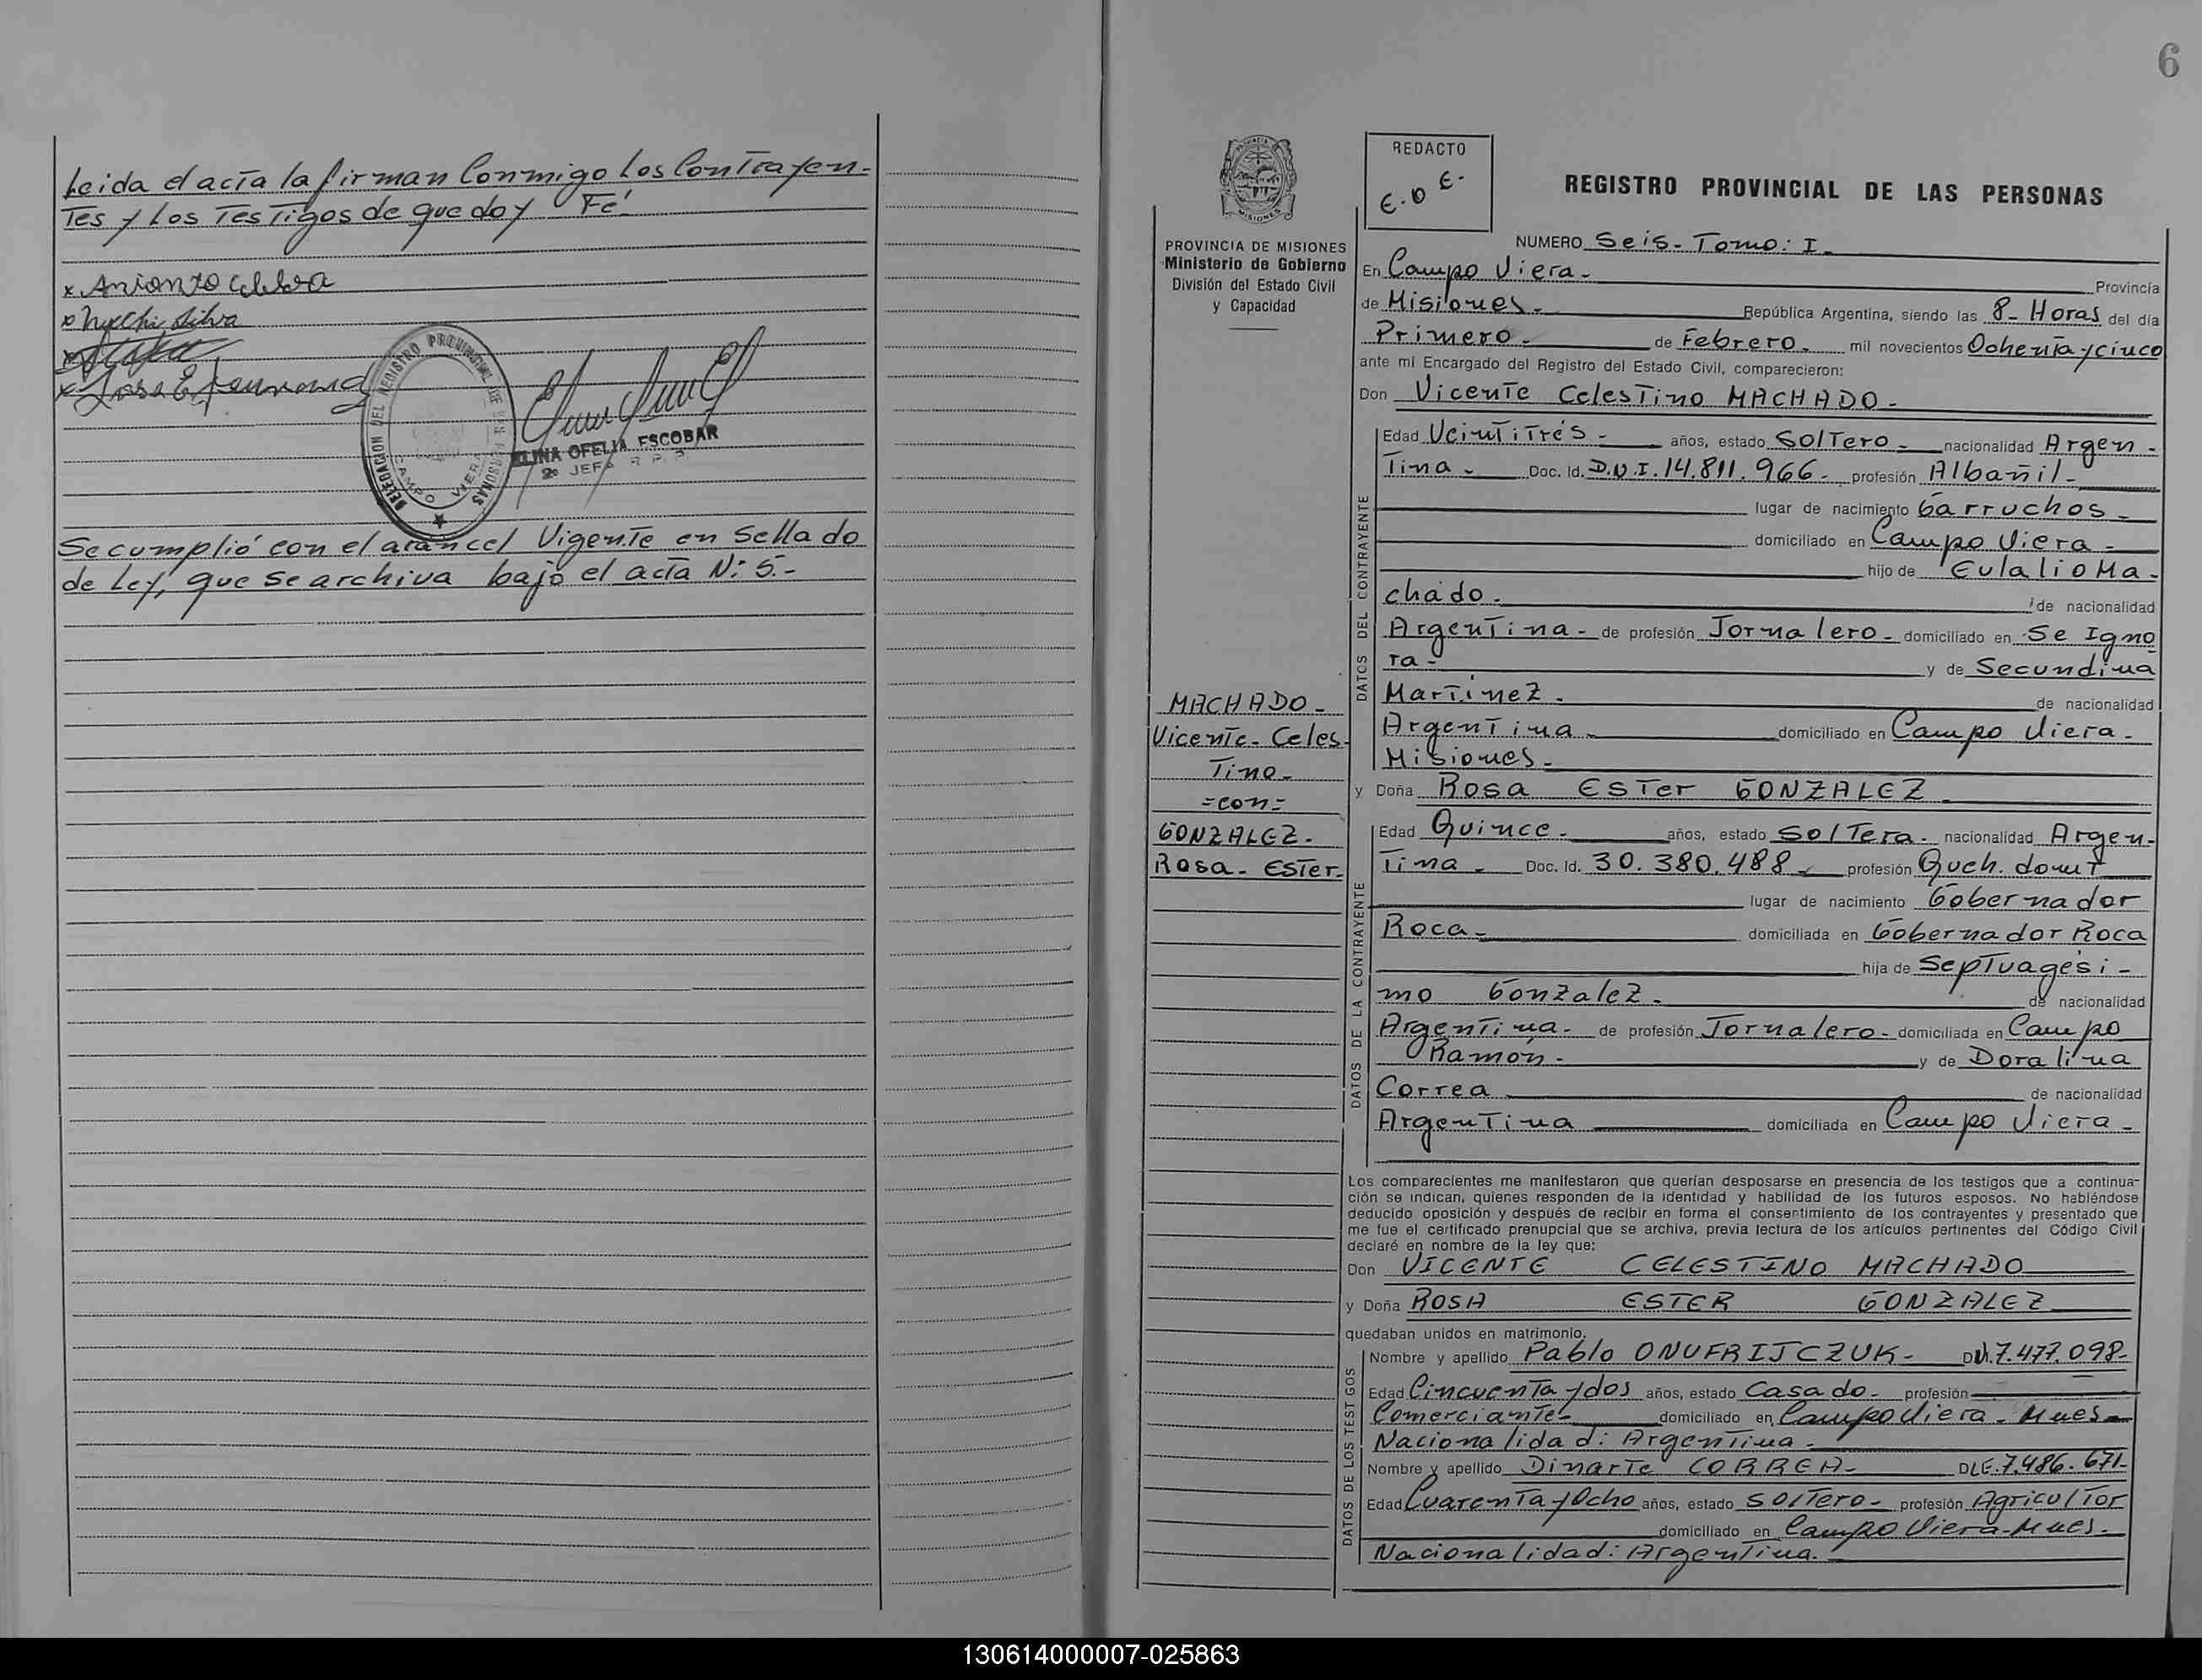 Leida el acta la firman Conmigo Los Contrayen-
tes y Los Testigos de que doy Fé.
x
x Silva
x
x
DELEGACION DEL REGISTRO PROVINCIAL DE LAS PERSONAS
CAMPO VIERA
ELINA OFELIA ESCOBAR
2º JEFE R. P. P.
Se cumplió con el arancel Vigente en Sellado
de Ley, que se archiva bajo el acta N: 5.-
6
PROVINCIA DE MISIONES
Ministerio de Gobierno
División del Estado Civil
y Capacidad
MACHADO-
Vicente- Celes-
Tino-
=con=
GONZALEZ-
Rosa- ESTer-
REDACTO
E.O E.
REGISTRO PROVINCIAL DE LAS PERSONAS
NUMERO Seis- Tomo: I-
En Campo Viera- Provincia
de Misiones- República Argentina, siendo las 8- Horas del día
Primero- de Febrero- mil novecientos Ochenta y cinco
ante mí Encargado del Registro del Estado Civil, comparecieron:
Don Vicente Celestino MACHADO-
DATOS DEL CONTRAYENTE
Edad Veintitrés- años, estado Soltero- nacionalidad Argen-
tina- Doc. Id. D.N.I. 14.811.966- profesión Albañil-
lugar de nacimiento Garruchos-
domiciliado en Campo Viera-
hijo de Eulalio Ma-
chado- de nacionalidad
Argentina- de profesión Jornalero- domiciliado en Se Igno
ra- y de Secundina
Martinez- de nacionalidad
Argentina- domiciliado en Campo Viera-
Misiones-
y Doña Rosa ESTer GONZALEZ-
DATOS DE LA CONTRAYENTE
Edad Quince- años, estado Soltera- nacionalidad Argen-
tina- Doc. Id. 30.380.488- profesión Queh. domt
lugar de nacimiento Gobernador
Roca- domiciliada en Gobernador Roca
hija de Septuagési-
mo Gonzalez- de nacionalidad
Argentina- de profesión Jornalero- domiciliada en Campo
Ramón- y de Doralina
Correa de nacionalidad
Argentina domiciliada en Campo Viera-
Los comparecientes me manifestaron que querían desposarse en presencia de los testigos que a continua-
ción se indican, quienes responden de la identidad y habilidad de los futuros esposos. No habiéndose
deducido oposición y después de recibir en forma el consentimiento de los contrayentes y presentado que
me fue el certificado prenupcial que se archiva, previa lectura de los artículos pertinentes del Código Civil
declaré en nombre de la ley que:
Don VICENTE CELESTINO MACHADO
y Doña ROSA ESTER GONZALEZ
quedaban unidos en matrimonio.
DATOS DE LOS TESTIGOS
Nombre y apellido Pablo ONUFRIJCZUK- DNI.7.477.098-
Edad Cincuenta y dos años, estado Casado- profesión
Comerciante- domiciliado en Campo Viera- Mnes-
Nacionalidad: Argentina-
Nombre y apellido Dinarte CORREA- DLE.7.486.671-
Edad Cuarenta y Ocho años, estado Soltero- profesión Agricultor
domiciliado en Campo Viera-Mnes-
Nacionalidad: Argentina.-
130614000007-025863